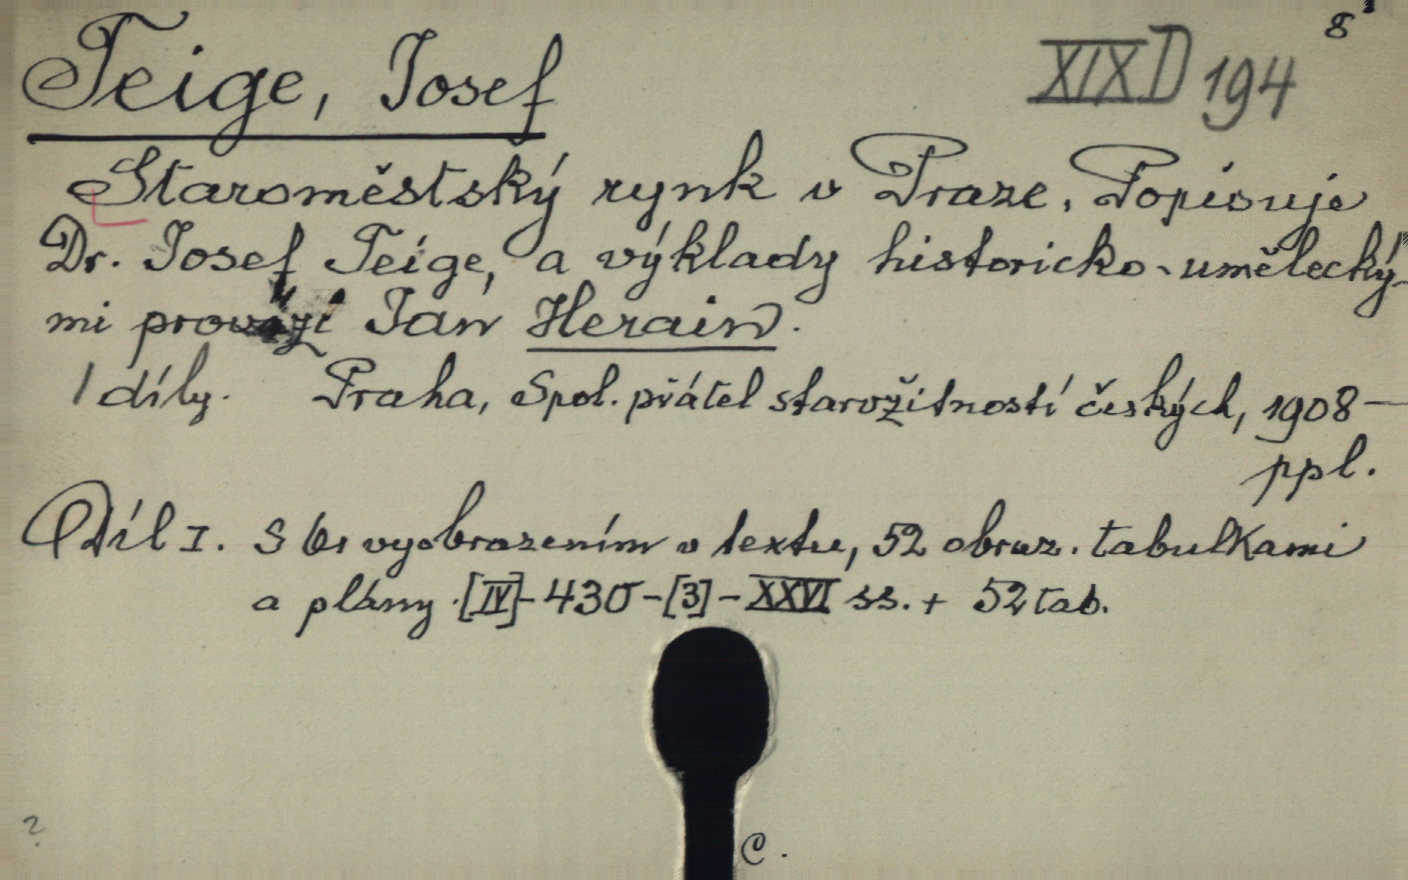 8°
Teige, Josef
XIX D 194
Staroměstský rynk v Praze. Popisuje
Dr. Josef Teige, a výklady historicko-umělecký-
mi provází Jan Herain.
1 díly. Praha, Spol. přátel starožitností českých, 1908—
ppl.
Díl I. S 61 vyobrazením v textu, 52 obraz. tabulkami
a plány. [IV]-430-[3]-XXVI ss. + 52 tab.
?
C.